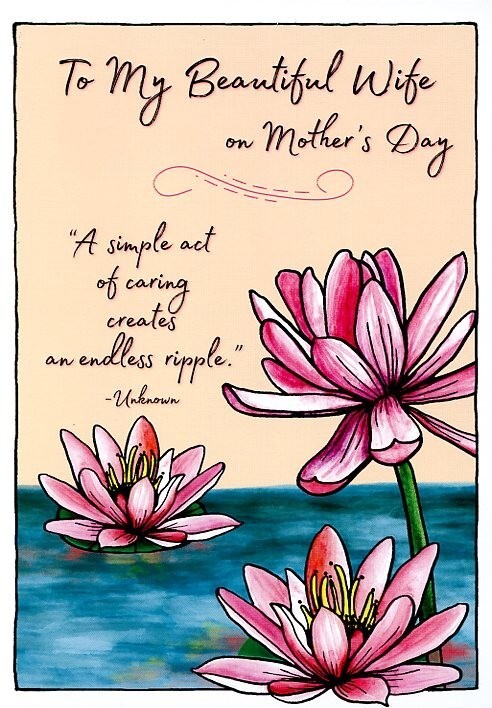 To My Beautiful Wife
on Mother's Day
"A simple act
of caring
creates
an endless ripple."
-Unknown